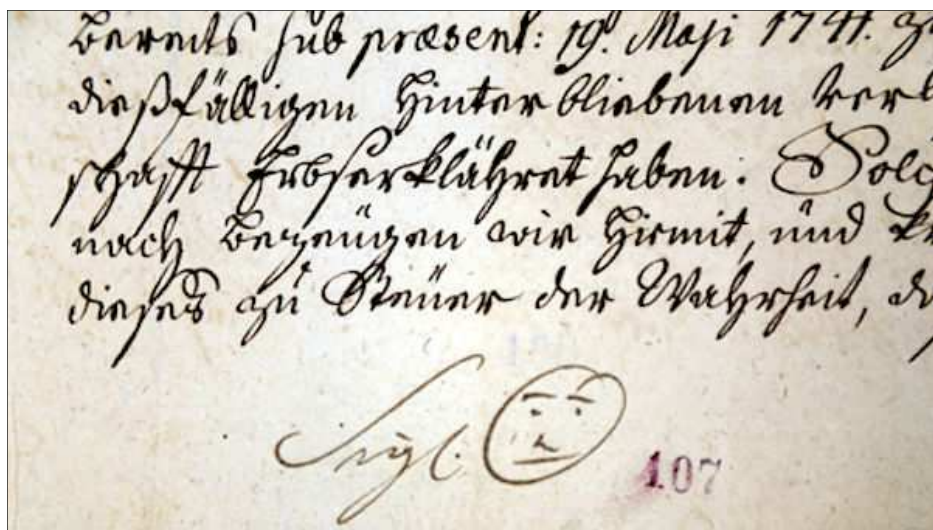 bereits sub præsent: 19. Maji 1741.
dießfälligen Hinterbliebenen
schafft Erbserklähret haben: Solch
nach bezeügen wir hiemit, und
dieses zu Steüer der Wahrheit,
Sigl.
107